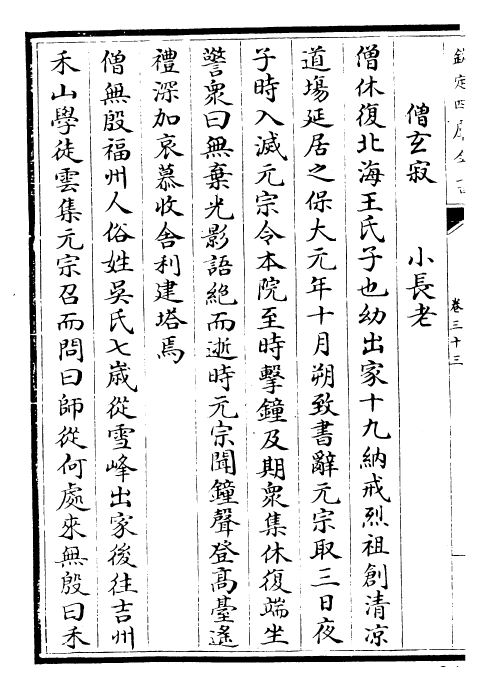 欽定四庫全書
卷三十三
僧玄寂　　小長老
僧休復北海王氏子也幼出家十九納戒烈祖創清凉
道塲延居之保大元年十月朔致書辭元宗取三日夜
子時入滅元宗令本院至時擊鐘及期衆集休復端坐
警衆曰無棄光影語絶而逝時元宗聞鐘聲登髙臺遙
禮深加哀慕收舍利建塔焉
僧無殷福州人俗姓吳氏七歲從雪峰出家後往吉州
禾山學徒雲集元宗召而問曰師從何處來無殷曰禾